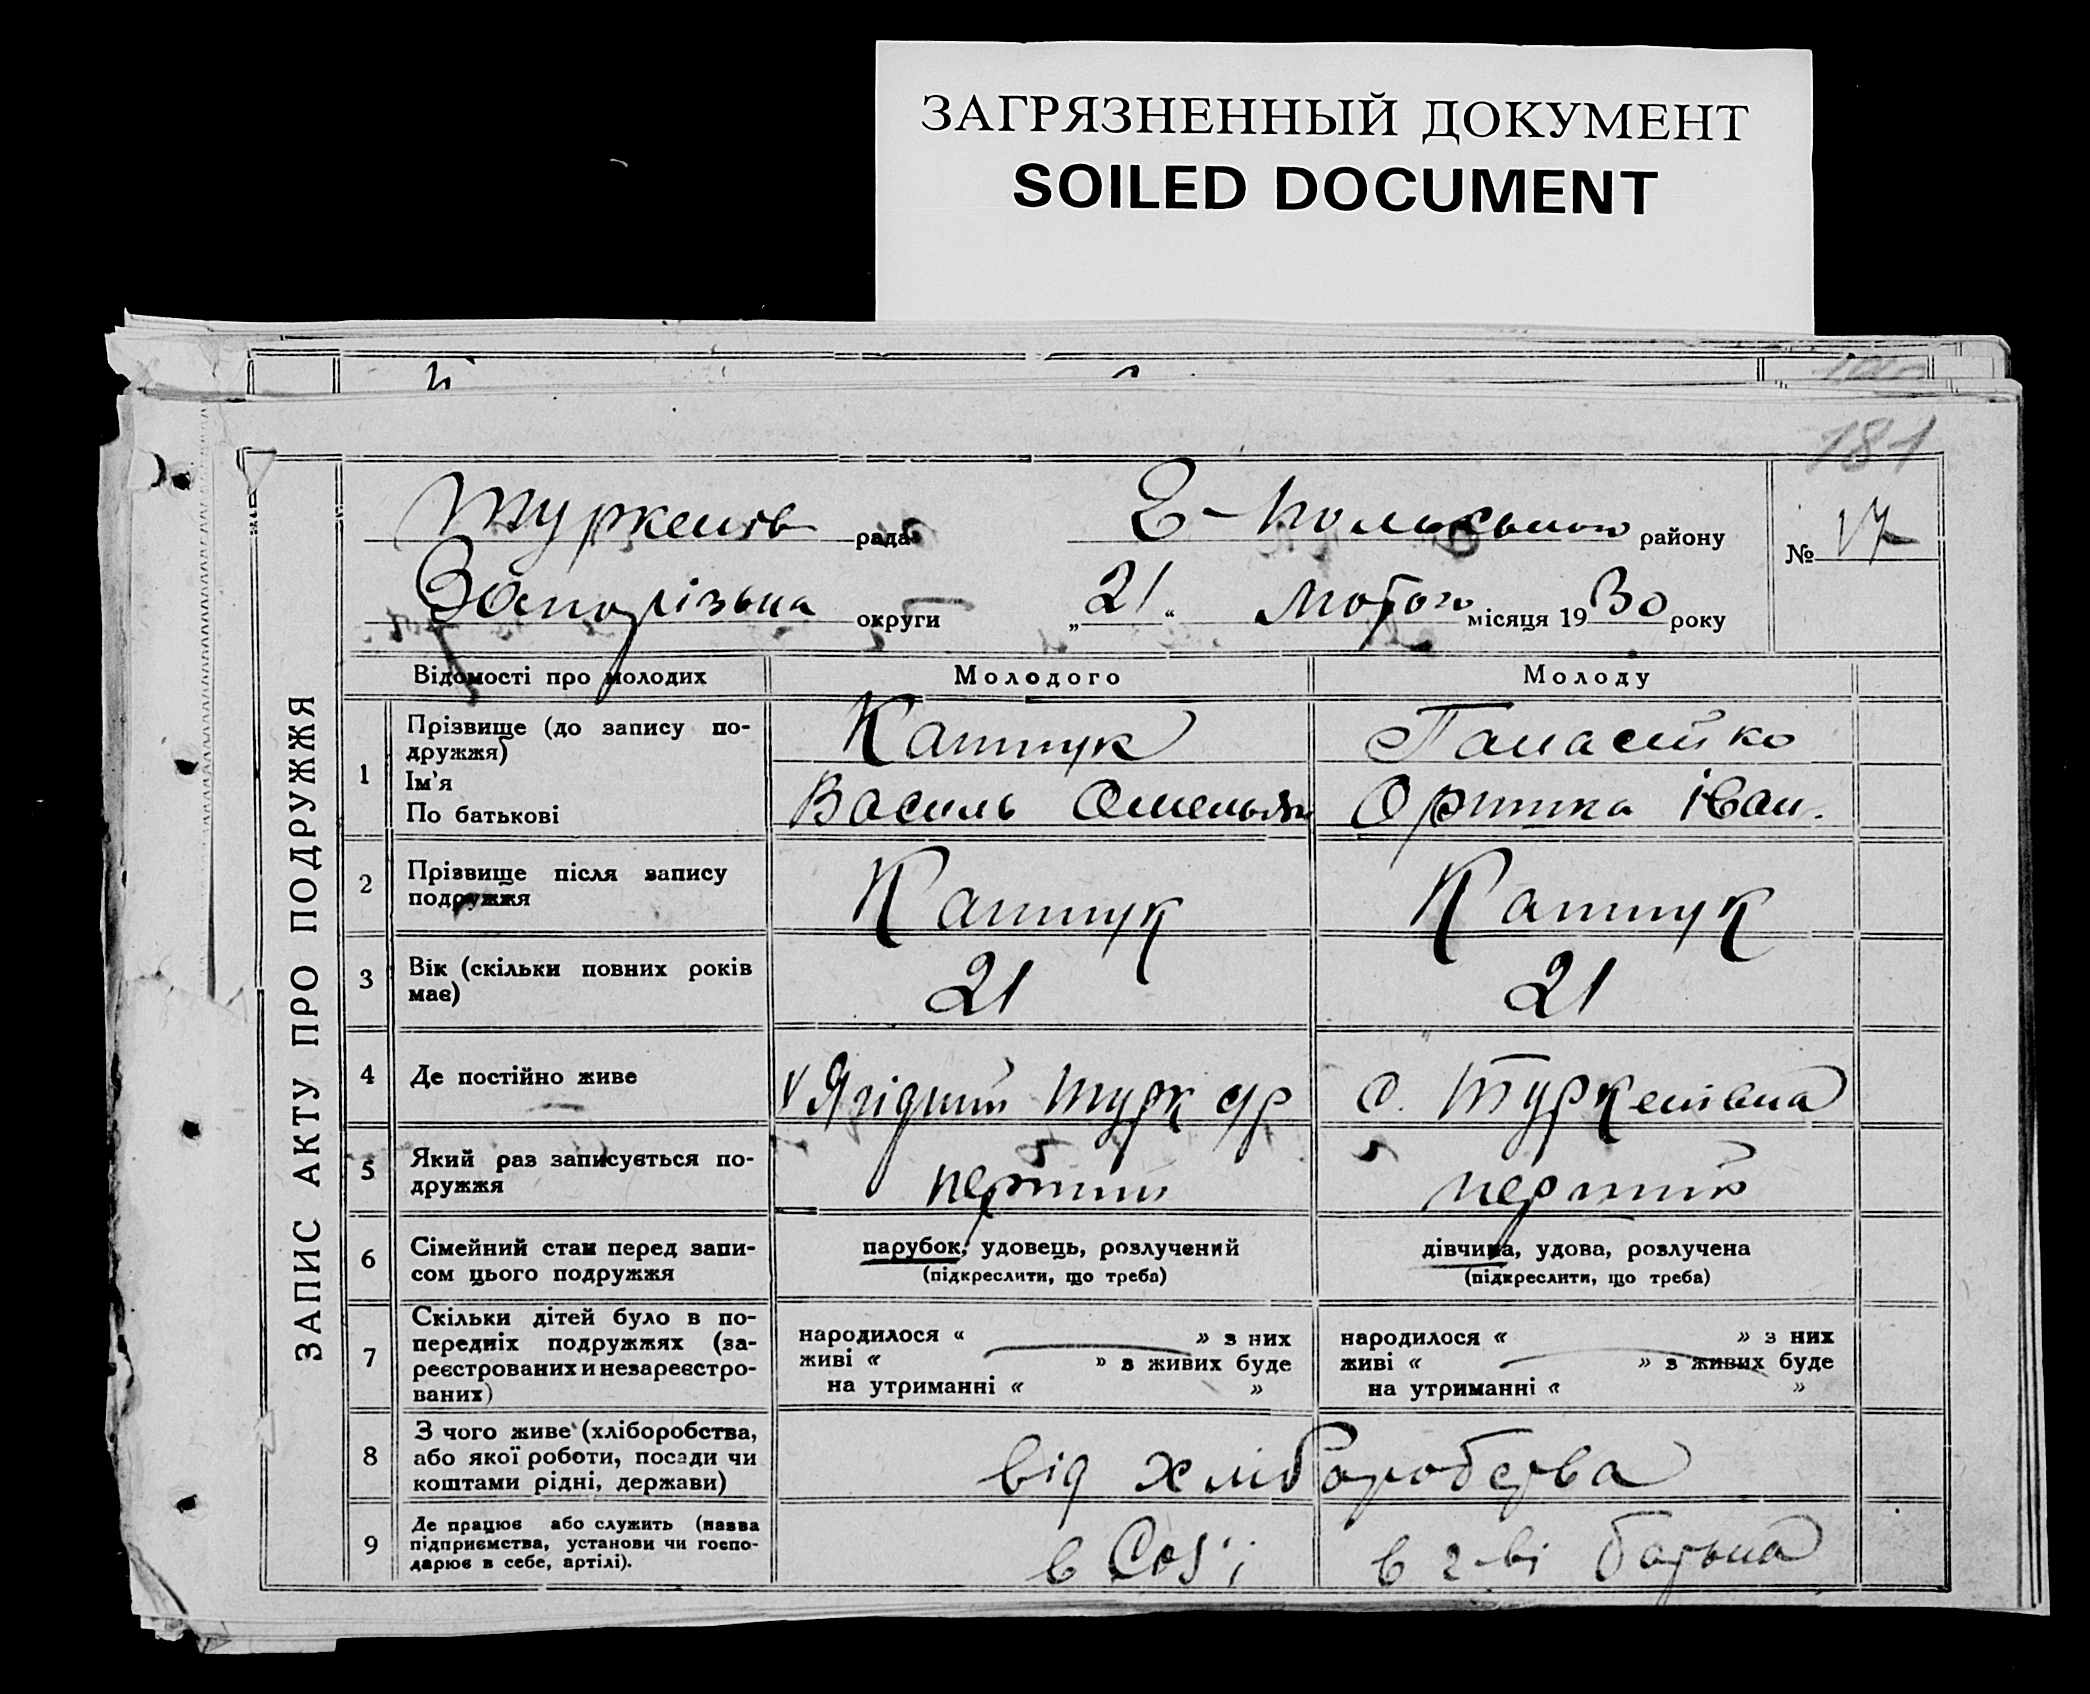 ЗАГРЯЗНЕННЫЙ ДОКУМЕНТ
SOILED DOCUMENT
181
ЗАПИС АКТУ ПРО ПОДРУЖЖЯ
рада Г-Польського району № 17
Запорізька округи „21“ Лютого місяця 1930 року
Відомості про молодих Молодого Молоду
1 Прізвище (до запису по-
дружжя)
Ім'я
По батькові
Каптук
Василь Омельян
Панасейко
Оришка Іван.
2 Прізвище після запису
подружжя
Каптук Каптук
3 Вік (скільки повних років
має)
21 21
4 Де постійно живе
с.
5 Який раз записується по-
дружжя
перший перший
6 Сімейний стан перед запи-
сом цього подружжя
парубок, удовець, розлучений
(підкреслити, що треба)
дівчина, удова, розлучена
(підкреслити, що треба)
7 Скільки дітей було в по-
передніх подружжях (за-
реєстрованих и незареєстро-
ваних)
народилося “ » з них
живі “ » з живих буде
на утриманні “ »
народилося “ » з них
живі “ » з живих буде
на утриманні “ »
8 З чого живе (хліборобства,
або якої роботи, посади чи
коштами рідні, держави)
від хліборобства
9 Де працює або служить (назва
підприємства, установи чи госпо-
дарює в себе, артілі).
в Соз'і в г-ві батька